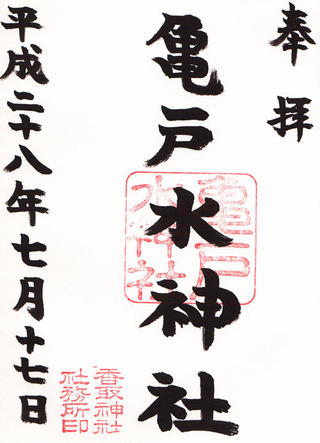 奉拝
亀戸水神社
亀戸水神社
平成二十八年七月十七日
香取神社
社務所印